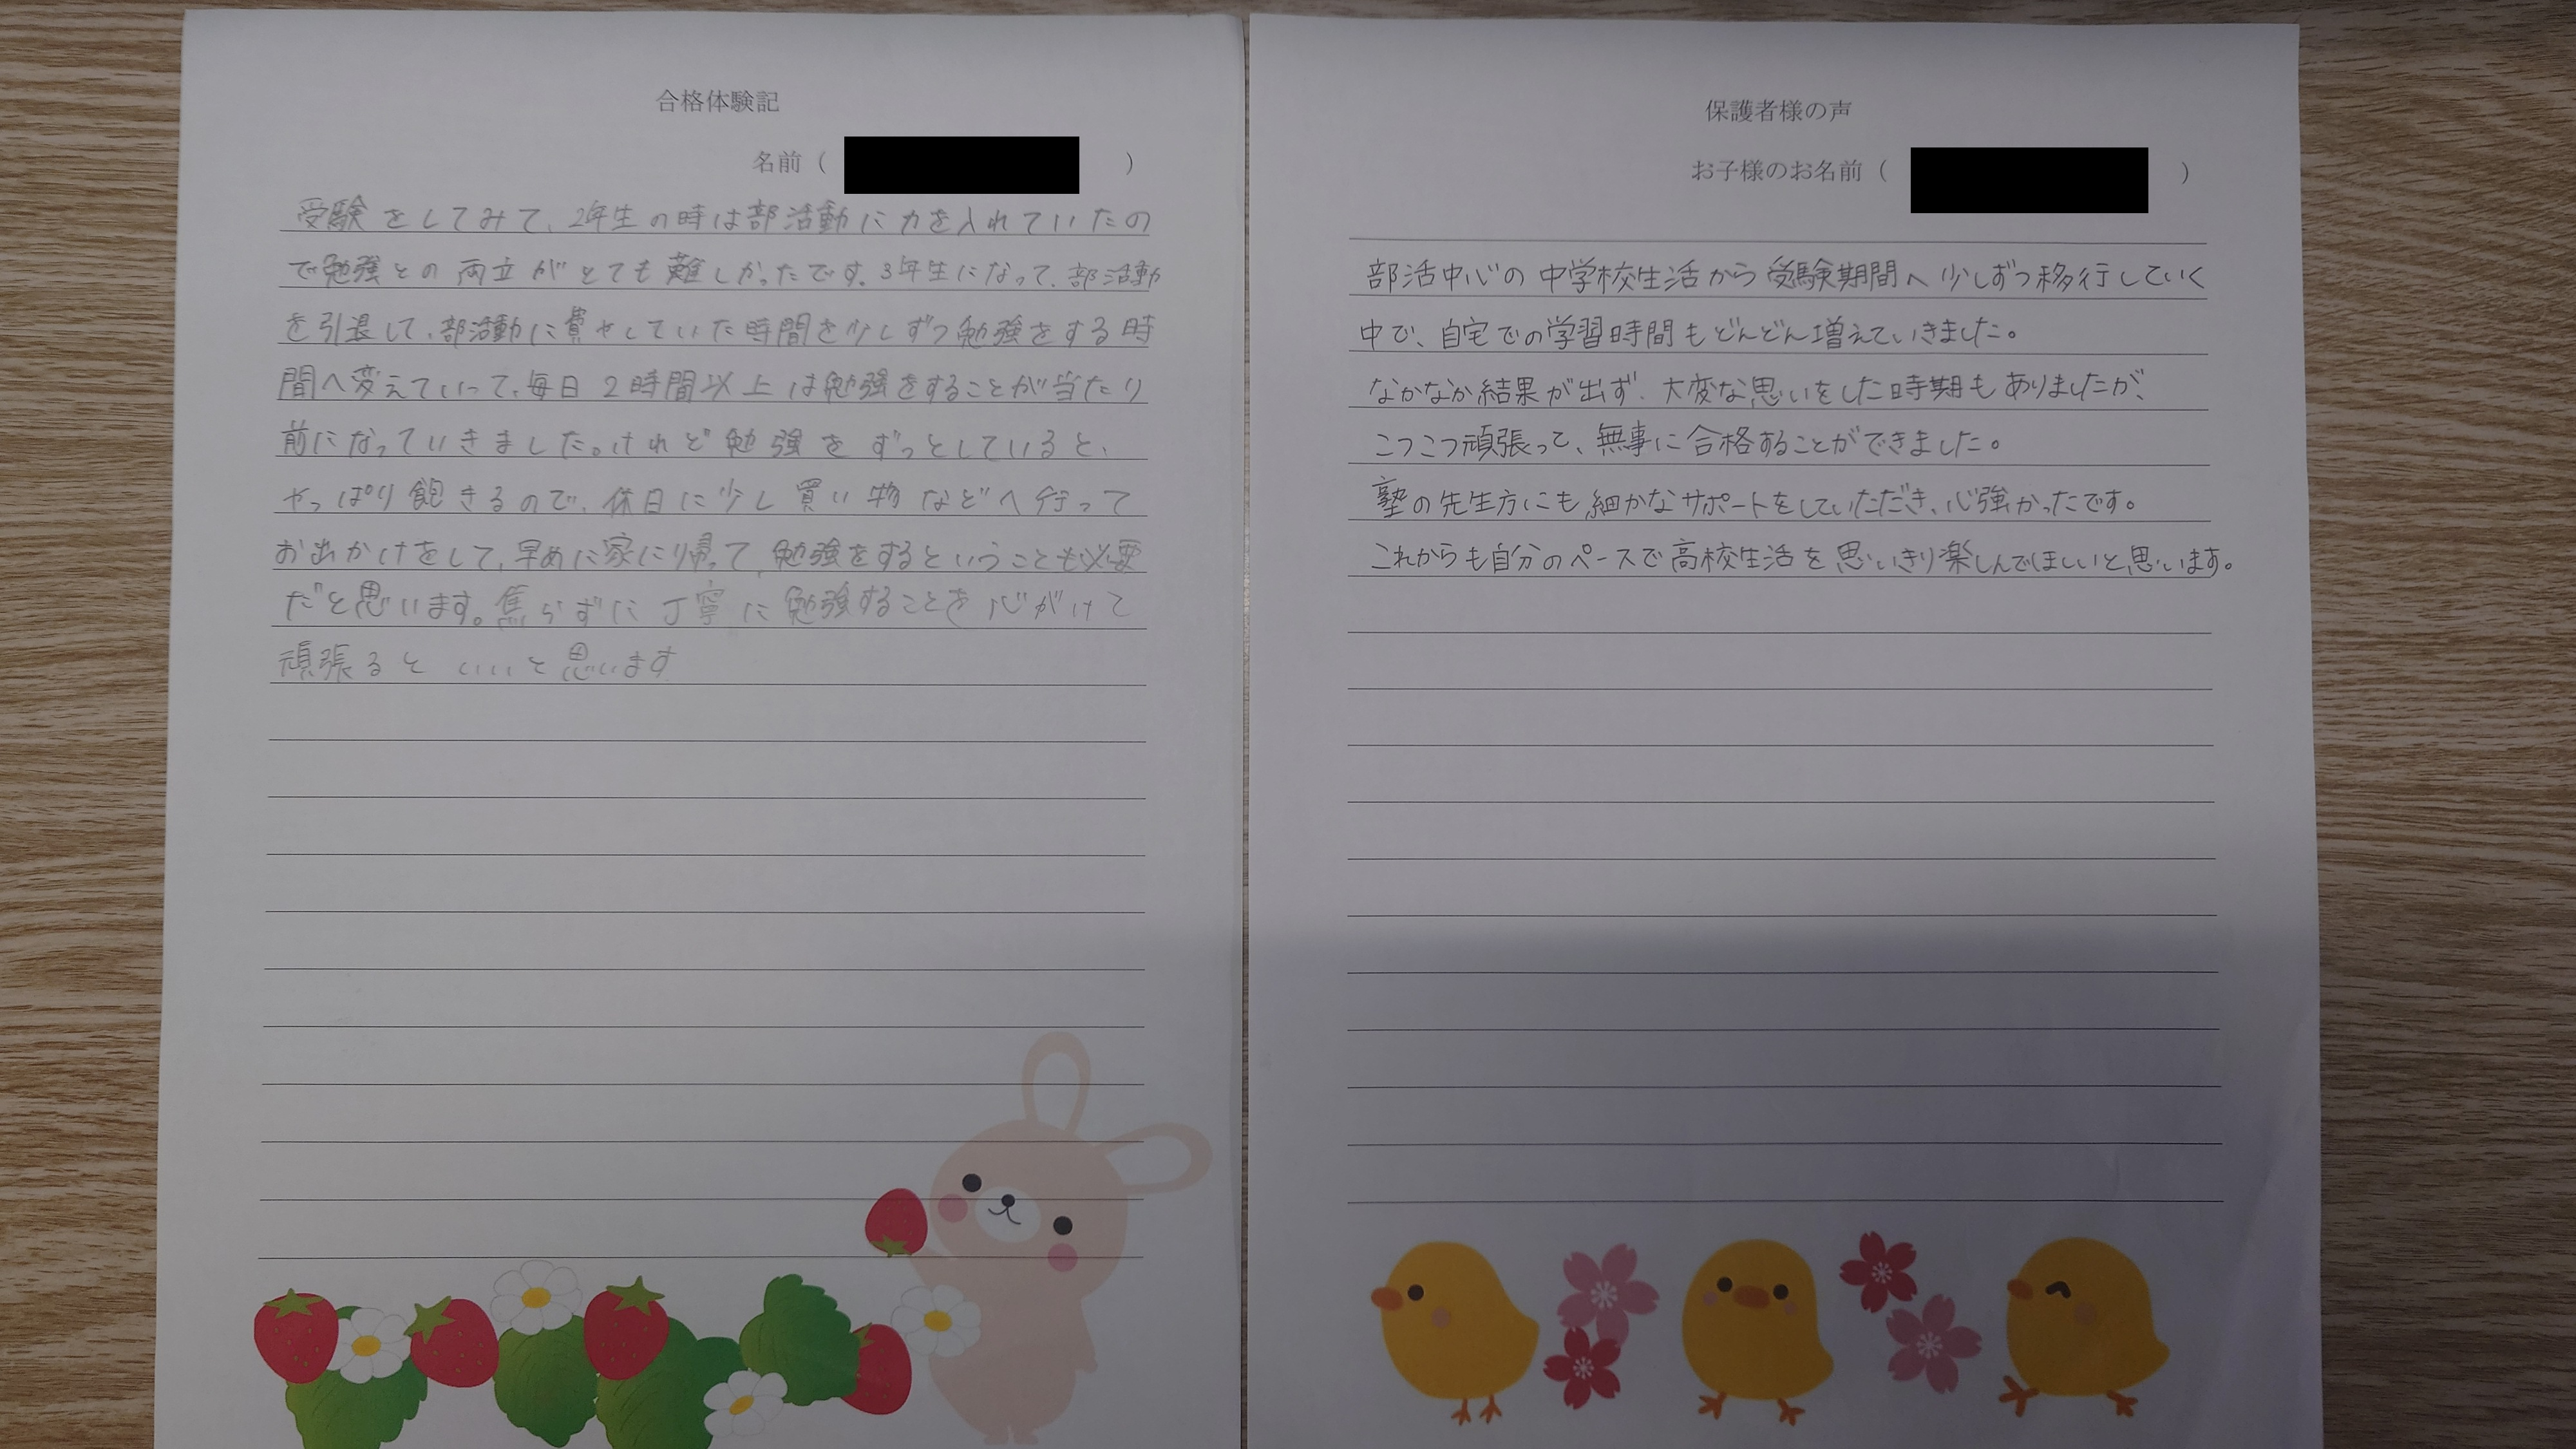 合格体験記
名前（　　　）
受験をしてみて、2年生の時は部活動に力を入れていたの
で勉強との両立がとても難しかったです。3年生になって、部活動
を引退して、部活動に費やしていた時間を少しずつ勉強をする時
間へ変えていって、毎日2時間以上は勉強をすることが当たり
前になっていきました。けれど勉強をずっとしていると、
やっぱり飽きるので、休日に少し買い物などへ行って
お出かけをして、早めに家に帰って、勉強をするということも必要
だと思います。焦らずに丁寧に勉強することを心がけて
頑張るといいと思います
保護者様の声
お子様のお名前（　　　）
部活中心の中学校生活から受験期間へ少しずつ移行していく
中で、自宅での学習時間もどんどん増えていきました。
なかなか結果が出ず、大変な思いをした時期もありましたが、
こつこつ頑張って、無事に合格することができました。
塾の先生方にも細かなサポートをしていただき、心強かったです。
これからも自分のペースで高校生活を思いきり楽しんでほしいと思います。